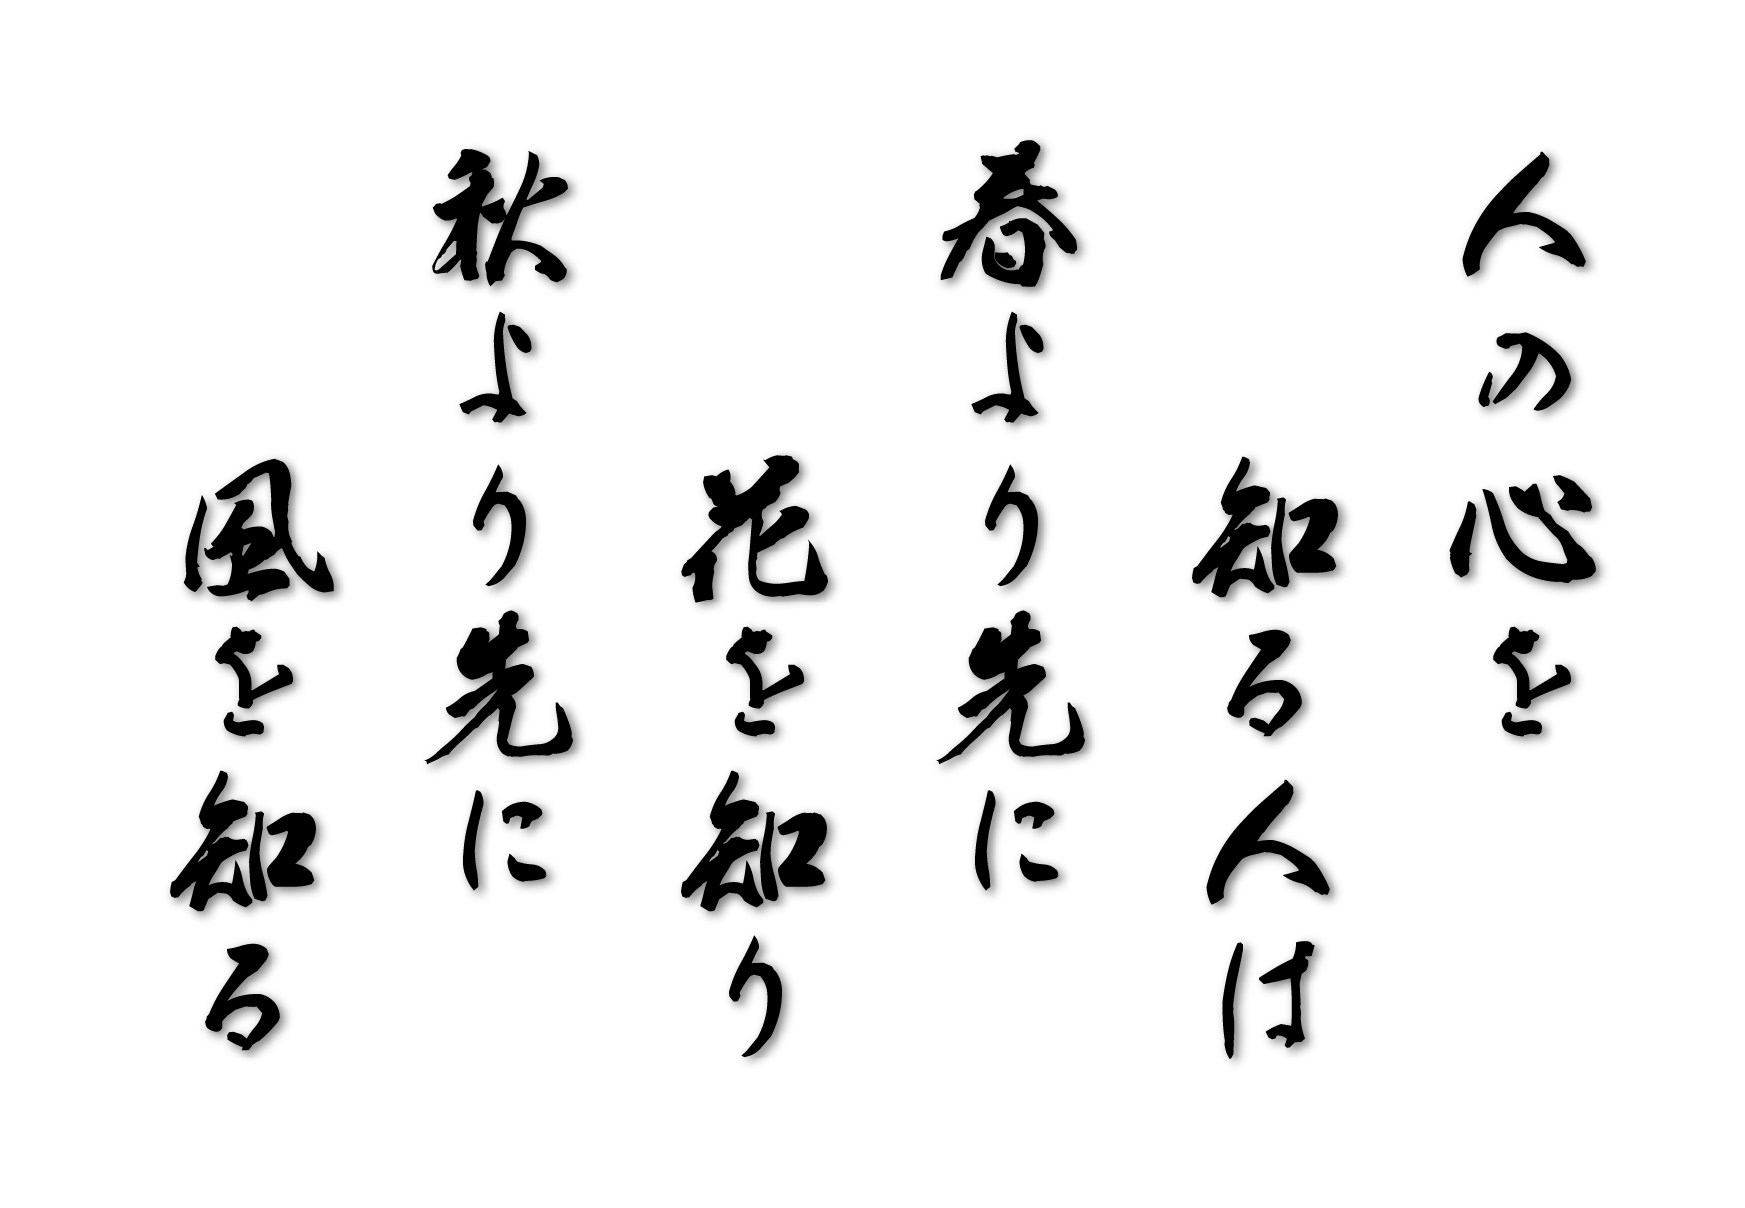 人の心を
知る人は
春より先に
花を知り
秋より先に
風を知る